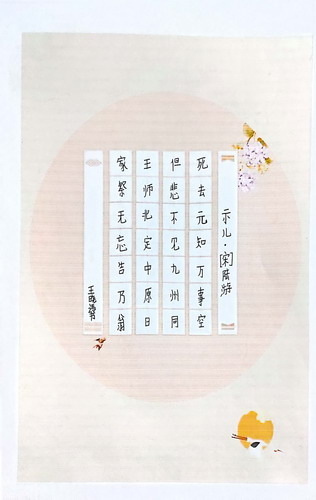 示儿·[宋]陆游
死去元知万事空
但悲不见九州同
王师北定中原日
家祭无忘告乃翁